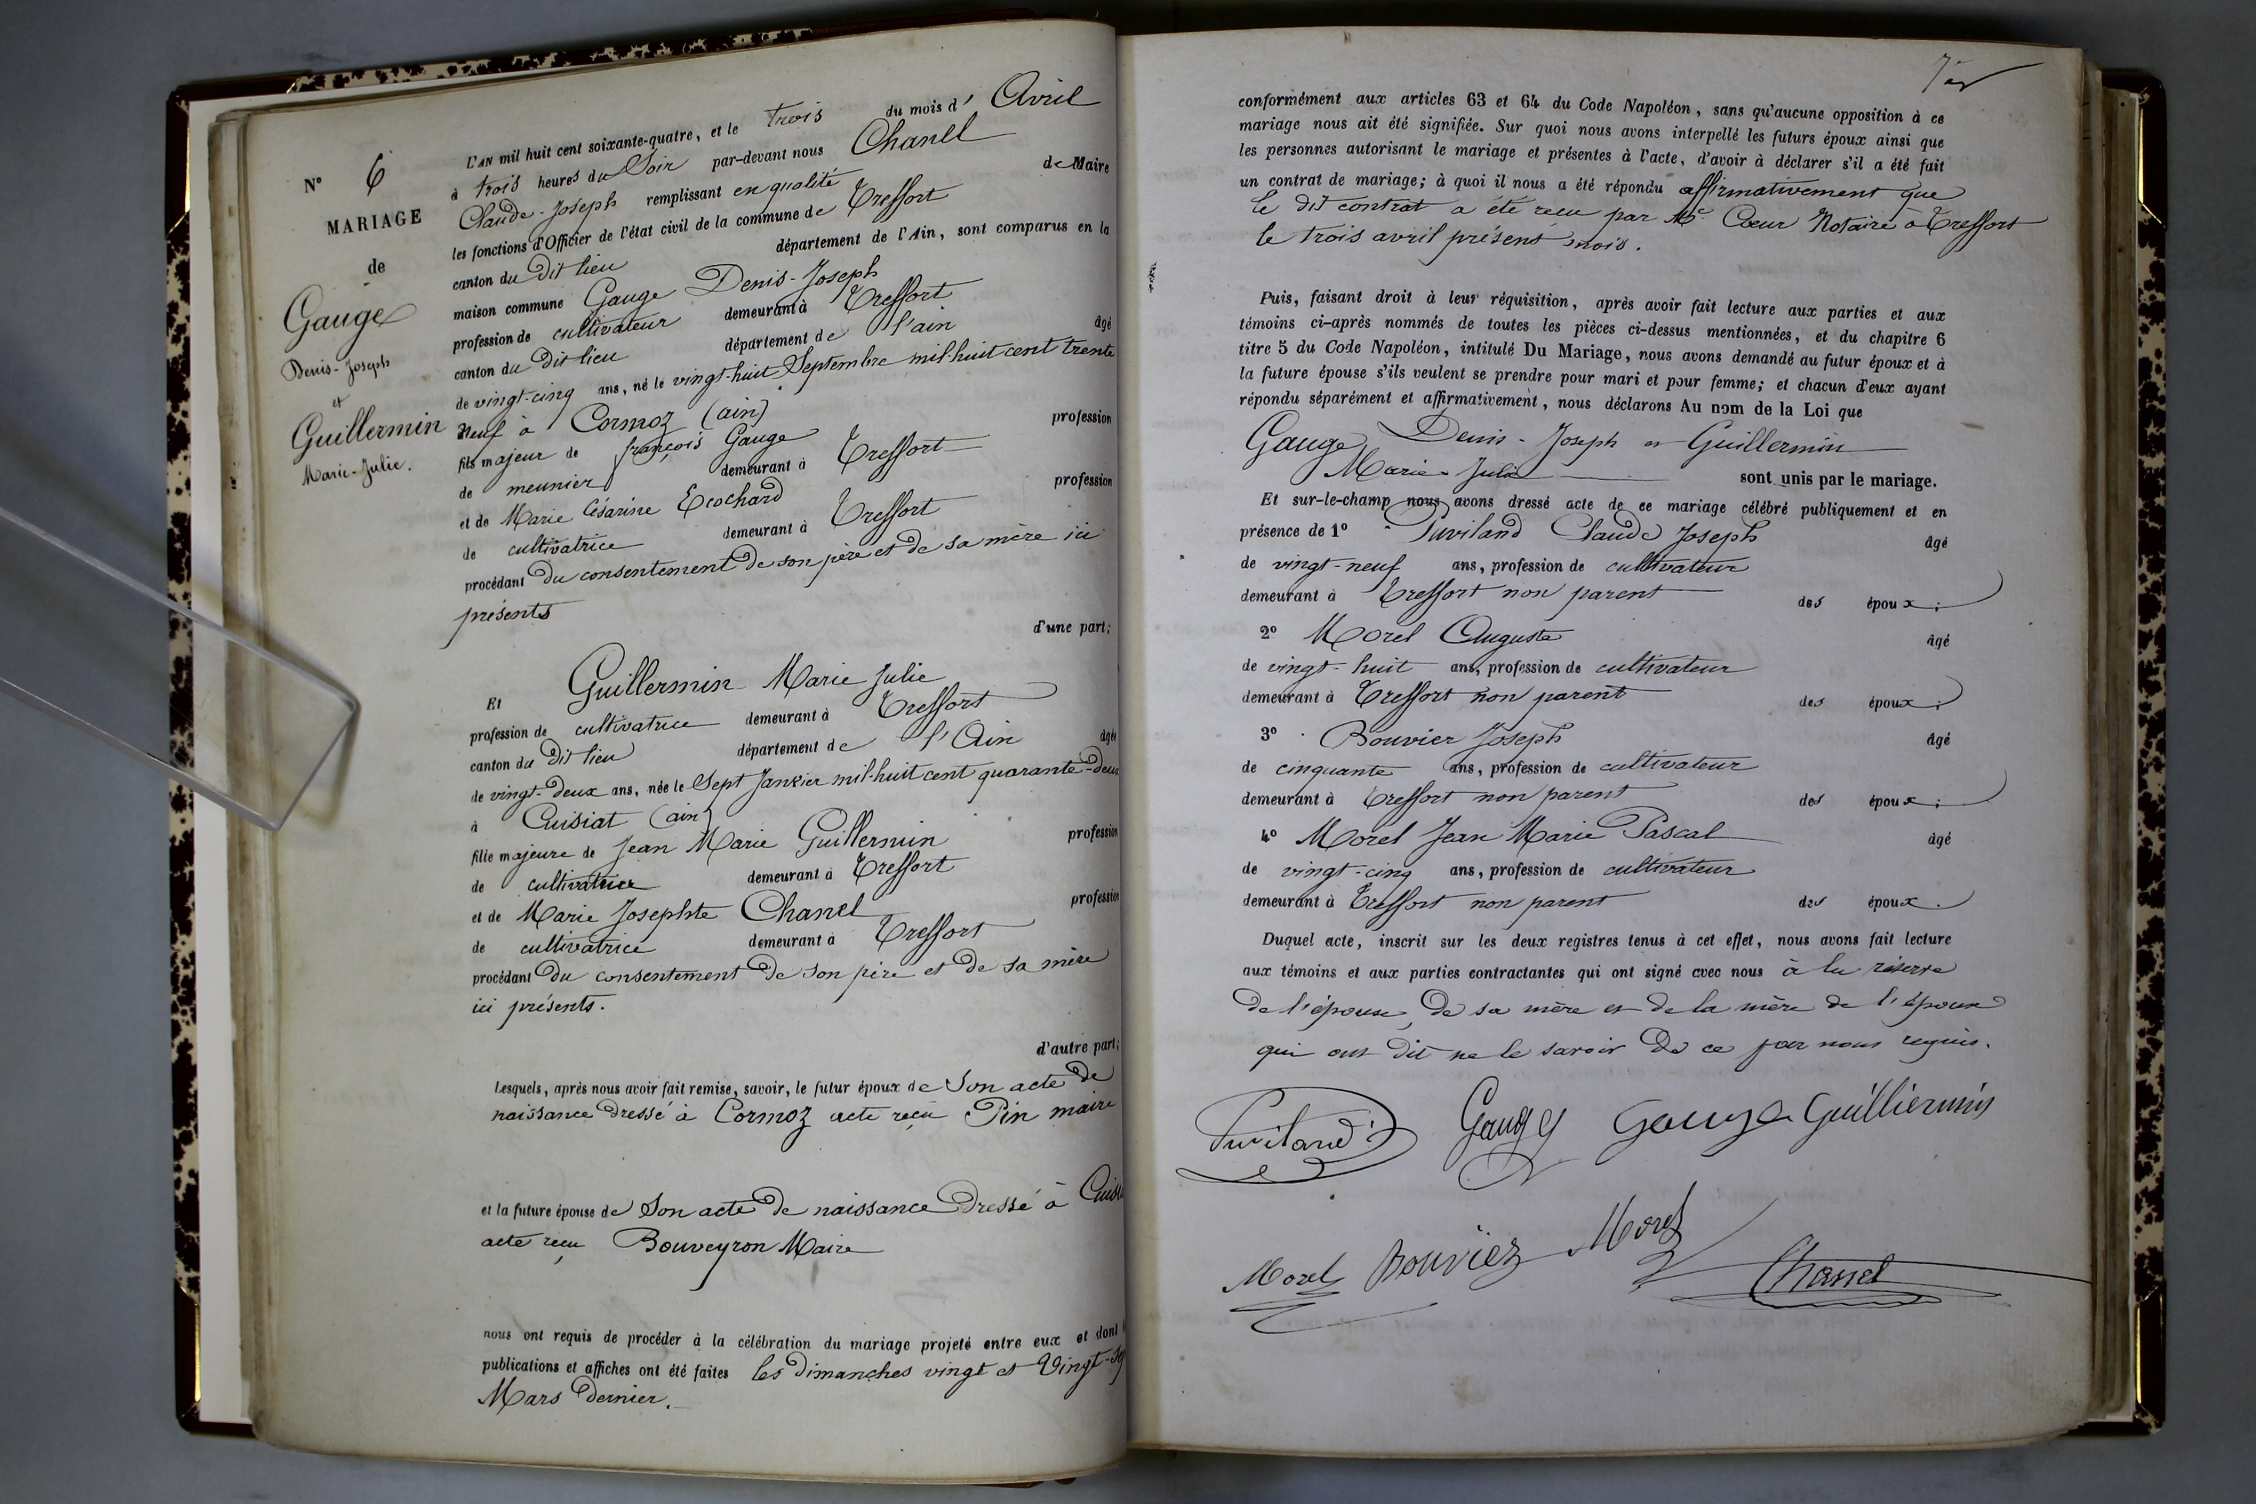 N° 6
MARIAGE
de
Gauge
Denis-Joseph
et
Guillermin
Marie-Julie.
L'AN mil huit cent soixante-quatre, et le trois du mois d' Avril
à trois heures du Soir par-devant nous Chanel
Claude-Joseph remplissant en qualité de Maire
les fonctions d'Officier de l'état civil de la commune de Treffort
canton du dit lieu département de l'Ain, sont comparus en la
maison commune Gauge Denis-Joseph
profession de cultivateur demeurant à Treffort
canton du dit lieu département de l'ain âgé
de vingt-cinq ans, né le vingt-huit Septembre mil-huit cent trente
Neuf à Cormoz (ain)
fils majeur de françois Gauge profession
de meunier demeurant à Treffort
et de Marie Césarine Ecochard profession
de cultivatrice demeurant à Treffort
procédant du consentement de son père et de sa mère ici
présents
d'une part;
Et Guillermin Marie Julie
profession de cultivatrice demeurant à Treffort
canton du dit lieu département de l'Ain âgée
de vingt-deux ans, née le Sept Janvier mil-huit cent quarante-deux
à Cuisiat (ain)
fille majeure de Jean Marie Guillermin profession
de cultivateur demeurant à Treffort
et de Marie Josephte Chanel profession
de cultivatrice demeurant à Treffort
procédant du consentement de son père et de sa mère
ici présents.
d'autre part;
Lesquels, après nous avoir fait remise, savoir, le futur époux de Son acte de
naissance dressé à Cormoz acte reçu Pin maire
et la future épouse de Son acte de naissance dressé à
acte reçu Bouveyron Maire
nous ont requis de procéder à la célébration du mariage projeté entre eux et dont
publications et affiches ont été faites les dimanches vingt et Vingt-
Mars dernier.
conformément aux articles 63 et 64 du Code Napoléon, sans qu'aucune opposition à ce
mariage nous ait été signifiée. Sur quoi nous avons interpellé les futurs époux ainsi que
les personnes autorisant le mariage et présentes à l'acte, d'avoir à déclarer s'il a été fait
un contrat de mariage; à quoi il nous a été répondu affirmativement que
le dit contrat a été recu par Me Cœur Notaire à Treffort
le trois avril présent mois.
Puis, faisant droit à leur réquisition, après avoir fait lecture aux parties et aux
témoins ci-après nommés de toutes les pièces ci-dessus mentionnées, et du chapitre 6
titre 5 du Code Napoléon, intitulé Du Mariage, nous avons demandé au futur époux et à
la future épouse s'ils veulent se prendre pour mari et pour femme; et chacun d'eux ayant
répondu séparément et affirmativement, nous déclarons Au nom de la Loi que
Gauge Denis-Joseph et Guillermin
Marie-Julie sont unis par le mariage.
Et sur-le-champ nous avons dressé acte de ce mariage célébré publiquement et en
présence de 1° Puviland Claude Joseph âgé
de vingt-neuf ans, profession de cultivateur
demeurant à Treffort non parent des époux;
2° Morel Auguste âgé
de vingt-huit ans, profession de cultivateur
demeurant à Treffort non parent des époux;
3° Bouvier Joseph âgé
de cinquante ans, profession de cultivateur
demeurant à Treffort non parent des époux;
4° Morel Jean Marie Pascal âgé
de vingt-cinq ans, profession de cultivateur
demeurant à Treffort non parent des époux.
Duquel acte, inscrit sur les deux registres tenus à cet effet, nous avons fait lecture
aux témoins et aux parties contractantes qui ont signé avec nous à la réserve
de l'épouse, de sa mère et de la mère de l'époux
qui ont dit ne le savoir de ce par nous requis.
Puviland Gauge Gauge Guilliermin
Morel Bouvier Morel Chanel